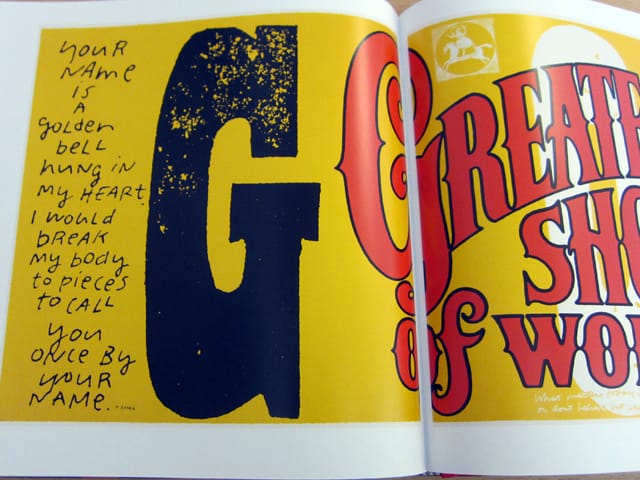 YOUR
NAME
IS
A
golden
bell
hung IN
MY HEART.
I would
BREAK
my body
to pieces
to CALL
you
ONCE BY
YOUR
NAME.
G
GREATE
SHO
Of WO